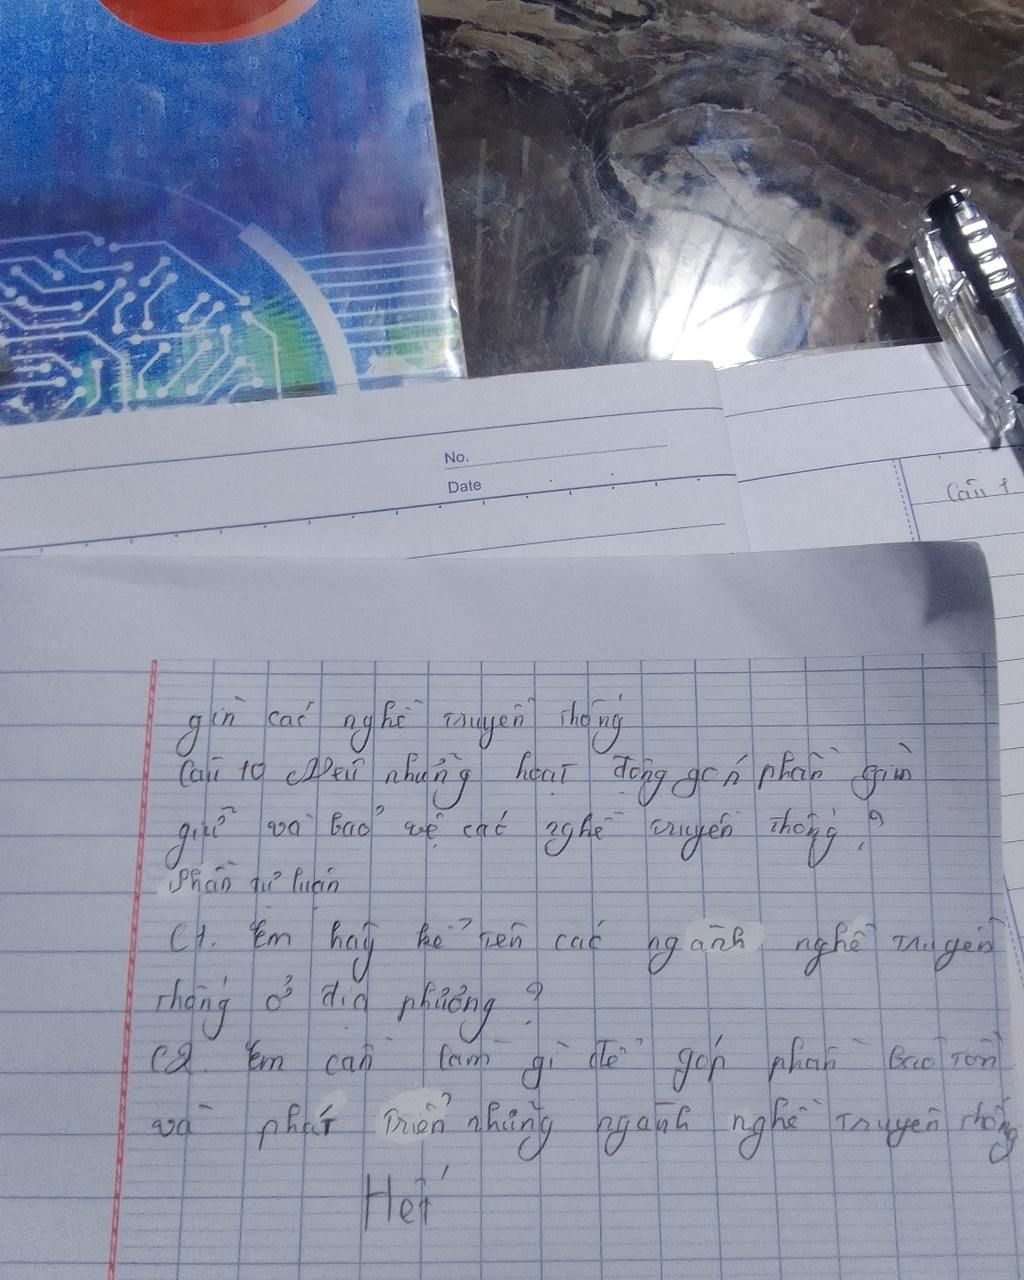 No.
Date
Câu 1
gìn các nghề truyền thống
Câu 10 Nêu những hoạt động góp phần gìn
giữ và bảo vệ các nghề truyền thống?
Phần tự luận
C1. Em hãy kể tên các ngành nghề truyền
thống ở địa phương?
C2. Em cần làm gì để góp phần bảo tồn
và phát triển những ngành nghề truyền thống
Hết